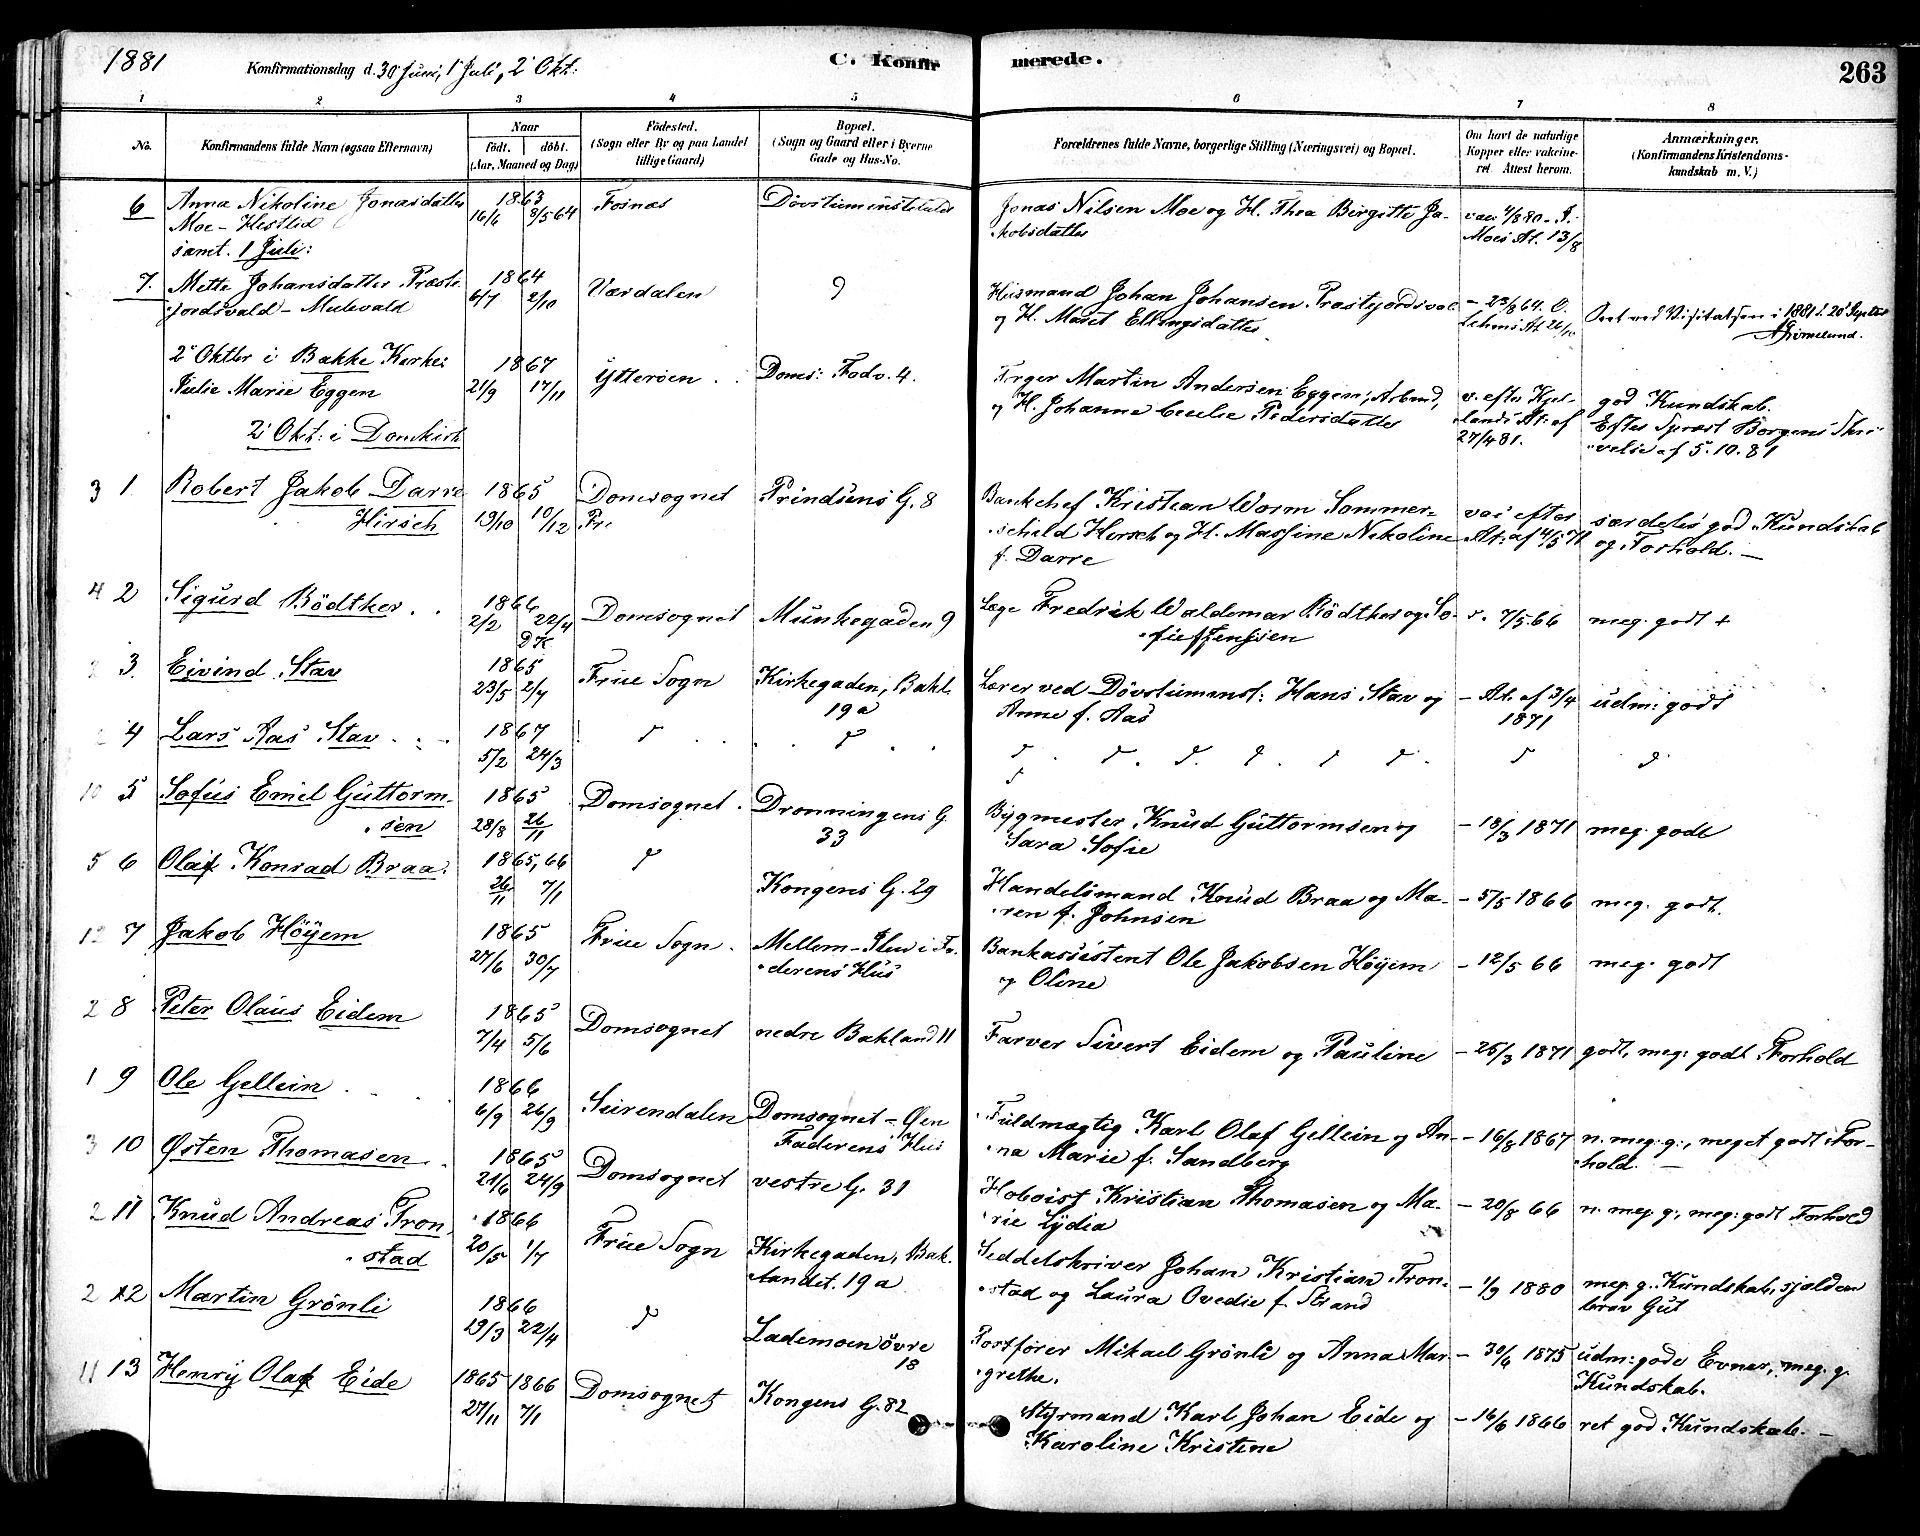 1881 Konfirmationsdag d. 30 Juni, 1 Juli, 2 Okt: C. Konfir merede. 263
1 2 3 4 5 6 7 8
No. Konfirmandens fulde Navn (ogsaa Efternavn) Naar født. døbt. (Aar, Maaned og Dag) Fødested. (Sogn eller By og paa Landet tillige Gaard) Bopæl. (Sogn og Gaard eller i Byerne Gade og Hus-No. Forældrenes fulde Navne, borgerlige Stilling (Næringsvei) og Bopæl. Om havt de naturlige Kopper eller vakcineret Attest herom. Anmærkninger. (Konfirmandens Kristendomskundskab m. V.)
6 Anna Nikoline Jonasdatter 1863 Fosnæs Døvstumminstitutet Jonas Nilsen Moe og H. Thea Birgitte Ja-
Moe - Hestlid 16/6 8/5 64 kobsdatter vac 4/8 80 - J. Moes At. 13/8
samt. 1 Juli:
7. Mette Johansdatter Præste- 1864 Værdalen Husmand Johan Johansen Præstejordsval - 23/8 64. O.
jordsvald - Mulevald 6/7 2/10 og H. Maret Ellingsdatter At. 26/10 ved Visitatsen i 1881 d. 20 Septbr
Grimelund.
2 Oktbr i Bakke Kirke: 1867 Ytterøen Doms: Fodv. 4. Martin Andersen Eggen, Arbmd, v. efter Kjel-
Julie Marie Eggen 21/9 17/11 og H. Johanne Cecilie Pedersdatter lands At: af 27/4 81. god Kundskab.
2 Okt: i Domkirk Efter Spræst Borgens Skri-
velse af 5.10.81
3 1 Robert Jakob Darre 1865 Domsognet Prindsens G. 8 Bankchef Kristian Worm Sommer- vac efter særdeles god Kundskab
Hirsch 19/10 10/12 Fr: schield Hirsch og H. Massine Nikoline At: af 14/5 71 og Forhold. -
f. Darre
4 2 Sigurd Bødtker 1866 Domsognet Munkegaden 9 Læge Fredrik Waldemar Bødtker og So- 7/5 66 meg. godt +
2/2 22/4 DK fie f Jenssen
2 3. Eivind Stav 1865 Frue Sogn Kirkegaden, Bakl. Lærer ved Døvstuminst: Hans Stav og - At. af 3/4 udm: godt
23/5 2/7 19a Anne f. Aas 1871
2 4 Lars Aas Stav 1867 d d d d d d d d d d
5/2 24/3 d
10 5 Sofus Emil Guttorm- 1865 Domsognet Dronningens G. Bygmester Knud Guttormsen og - 18/3 1871 meg. godt
sen 28/8 26/11 33 Sara Sofie
5 6 Olaf Konrad Braa. 1865, 66 d Kongens G. 29 Handelsmand Knud Braa og Ma- - 5/5 1866 meg. godt.
26/11 7/1 ren f. Johnsen
12 7 Jakob Høyem 1865 Frue Sogn Mellem-Ilen i Fa- Bankassistent Ole Jakobsen Høyem - 12/5 66 meg. godt
27/6 30/7 derens Hus og Oline
2 8 Peter Olaus Eidem 1865 Domsognet nedre Bakland 11 Farver Sivert Eidem og Pauline - 25/3 1871 godt, meg: godt Forhold
7/4 5/6
1 9 Ole Gellein 1866 Surendalen Domsognet - Øen Fuldmægtig Karl Olaf Gellein og An- - 16/8 1867 n. meg. g., meget godt For-
6/9 26/9 Faderens Hus na Marie f. Sandberg hold. -
3 10 Østen Thomasen 1865 Domsognet vestre G. 31 Hoboist Kristian Thomasen og Ma- - 20/8 66 n. meg. g., meg: godt Forhold
21/6 24/9 rie Lydia
2 11 Knud Andreas Tron- 1866 Frue Sogn Kirkegaden, Bak- Seddelskriver Johan Kristian Tron- - 1/9 1880 meg. g. Kundskab, sjelden
stad 20/5 1/7 landet. 19a stad og Laura Ovedie f. Strand brav Gut
2 12 Martin Grønli 1866 d Lademoen øvre Postfører Mikael Grønli og Anna Mar- - 30/6 1875 udm: gode Evner, meg. g.
19/3 22/4 18 grethe. Kundskab.
11 13 Henry Olaf Eide 1865 1866 Domsognet Kongens G. 82 Styrmand Karl Johan Eide og - 16/6 1866 ret god Kundskab. -
27/11 7/1 Karoline Kristine